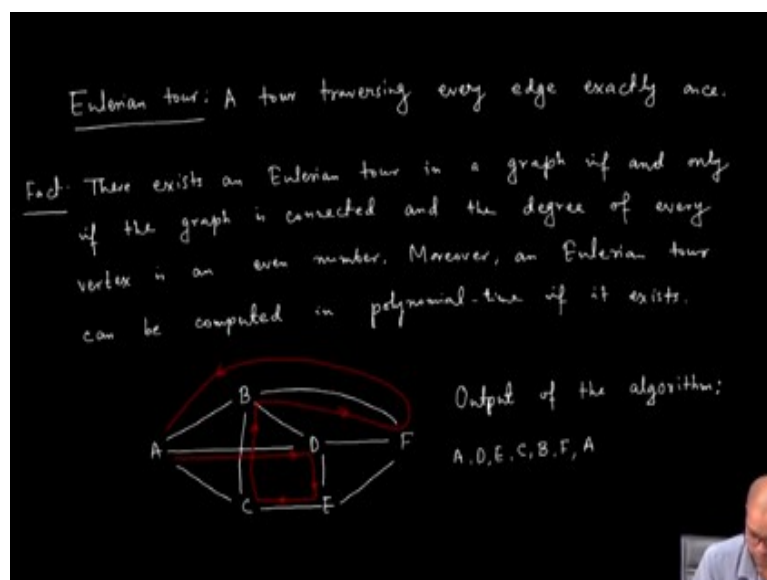 Eulerian tour: A tour traversing every edge exactly once.
Fact: There exists an Eulerian tour in a graph if and only
if the graph is connected and the degree of every
vertex is an even number. Moreover, an Eulerian tour
can be computed in polynomial-time if it exists.
B
A
D
F
C
E
Output of the algorithm:
A, D, E, C, B, F, A